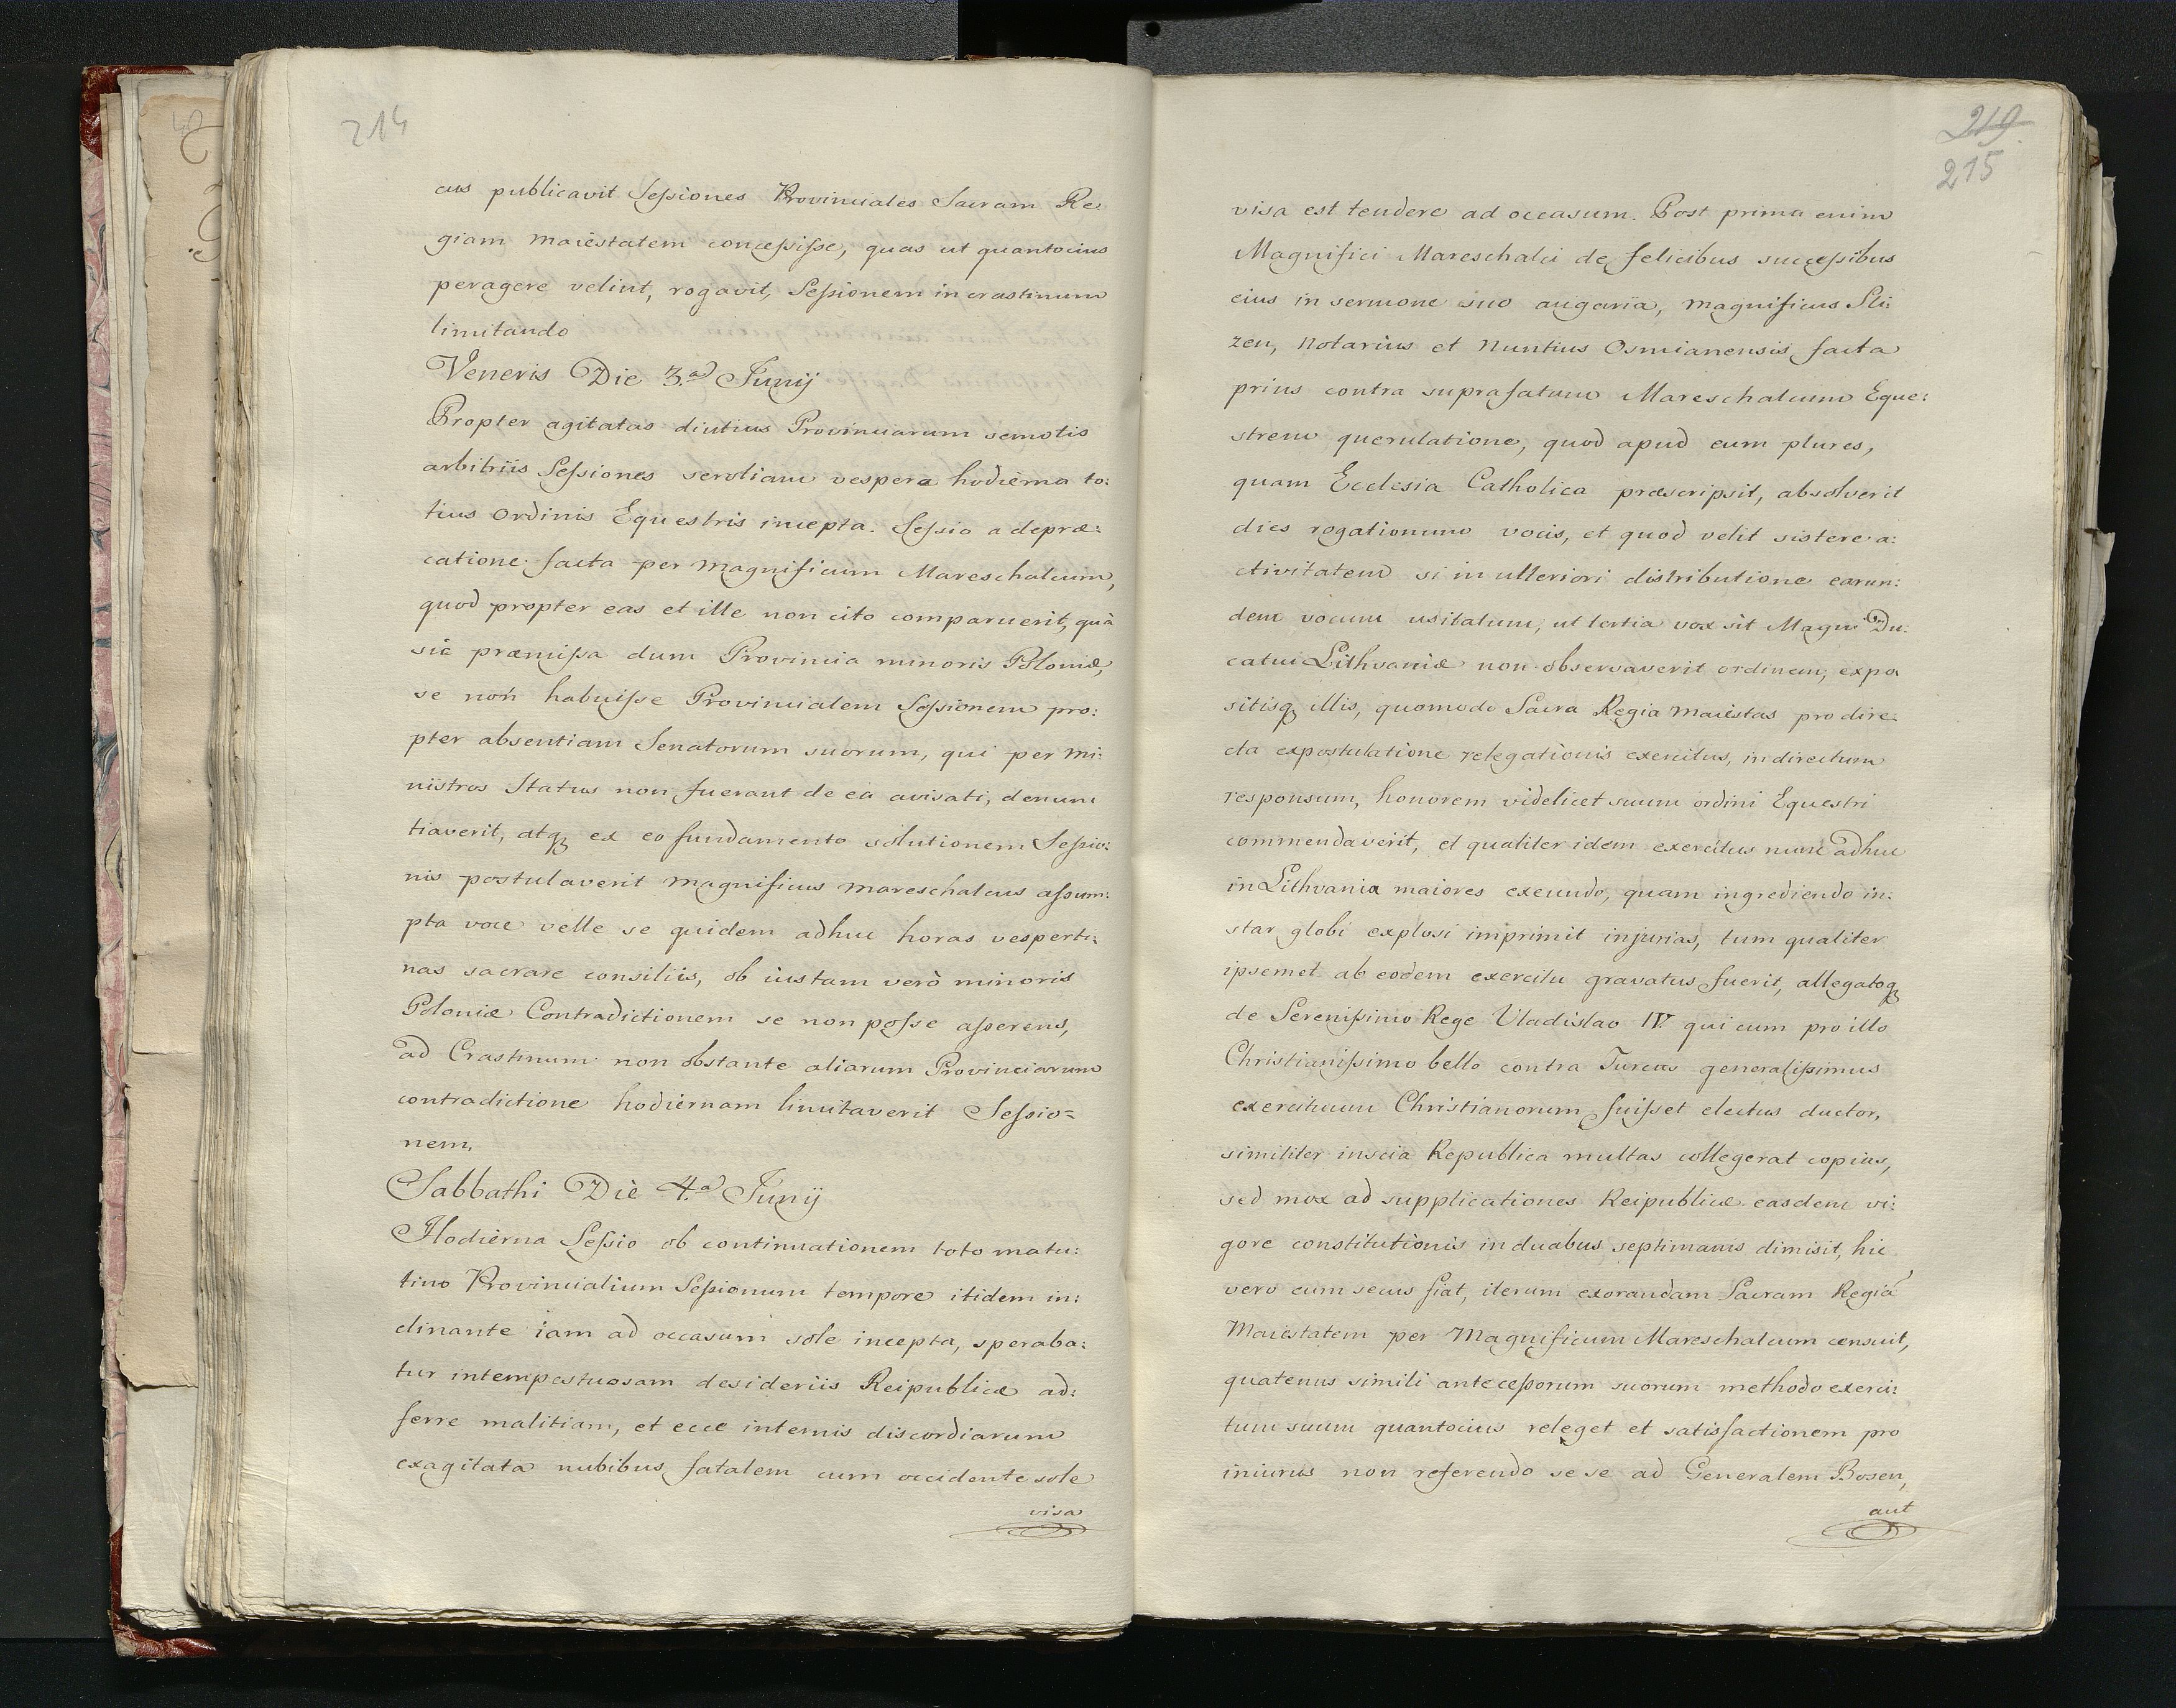 214
cus publicavit Sessiones Provinciales Sacram Re:
giam Maiestatem concessisse, quas ut quantocius
peragere velint, rogavit, Sessionem in crastinum
limitando
Veneris Die 3.a Junij
Propter agitatas diutius Provinciarum semotis
arbitriis Sessiones serotiam vespera hodierna to:
tius Ordinis Equestris incepta. Sessio a depræ:
catione facta per Magnificum Mareschalcum,
quod propter eas et ille non cito comparuerit, quà
sic præmissa dum Provincia minoris Poloniæ,
se non habuisse Provincialem Sessionem pro:
pter absentiam Senatorum suorum, qui per Mi:
nistros Status non fuerant de ea avisati, denun
tiaverit, atq ex eo fundamento solutionem Sessio:
nis postulaverit Magnificus Mareschalcus assum:
pta voce velle se quidem adhuc horas vesperti:
nas sacrare consiliis, ob iustam verò minoris
Poloniæ Contradictionem se non posse asserens,
ad Crastinum non obstante aliarum Provinciarum
contradictione hodiernam limitaverit Sessio=
nem.
Sabbathi Die 4.a Junij
Hodierna Sessio ob continuationem toto matu:
tino Provincialium Sessionum tempore itidem in:
clinante iam ad occasum sole incepta, speraba:
tur intempestuosam desideriis Reipublicæ ad:
ferre malitiam, et ecce internis discordiarum
exagitata nubibus fatalem cum occidente sole
visa
219
215
visa est tendere ad occasum. Post prima enim
Magnifici Mareschalci de felicibus successibus
eius in sermone suo auguria, Magnificus Sli:
zen, Notarius et Nuntius Osmianensis facta
prius contra suprafatum Mareschalcum Eque:
strem querulatione, quod apud eum plures,
quam Ecclesia Catholica præscripsit, absolverit
dies rogationum vocis, et quod velit sistere a:
ctivitatem si in ulteriori distributione earun:
dem vocum usitatum, ut tertia vox sit Magni Du:
catui Lithvaniæ non observaverit ordinem, expo
sitisq illis, quomodo Sacra Regia Maiestas pro dire:
cta expostulatione relegationis exercitus, indirectum
responsum, honorem videlicet suum ordini Equestri
commendaverit, et qualiter idem exercitus nunc adhuc
in Lithvania maiores exeundo, quam ingrediendo in:
star globi explosi imprimit injurias, tum qualiter
ipsemet ab eodem exercitu gravatus fuerit, allegatoq
de Serenissimo Rege Vladislao IV. qui cum pro illo
Christianissimo bello contra Turcas generalissimus
exercituum Christianorum fuisset electus ductor,
similiter inscia Republica multas collegerat copias,
sed mox ad supplicationes Reipublicæ easdem vi:
gore constitutionis in duabus septimanis dimisit, hic
vero cum secus fiat, iterum exorandam Sacram Regiã
Maiestatem per Magnificum Mareschalcum censuit,
quatenus simili antecessorum suorum methodo exerci:
tum suum quantocius releget et satisfactionem pro
iniuriis non referendo se se ad Generalem Bosen,
aut